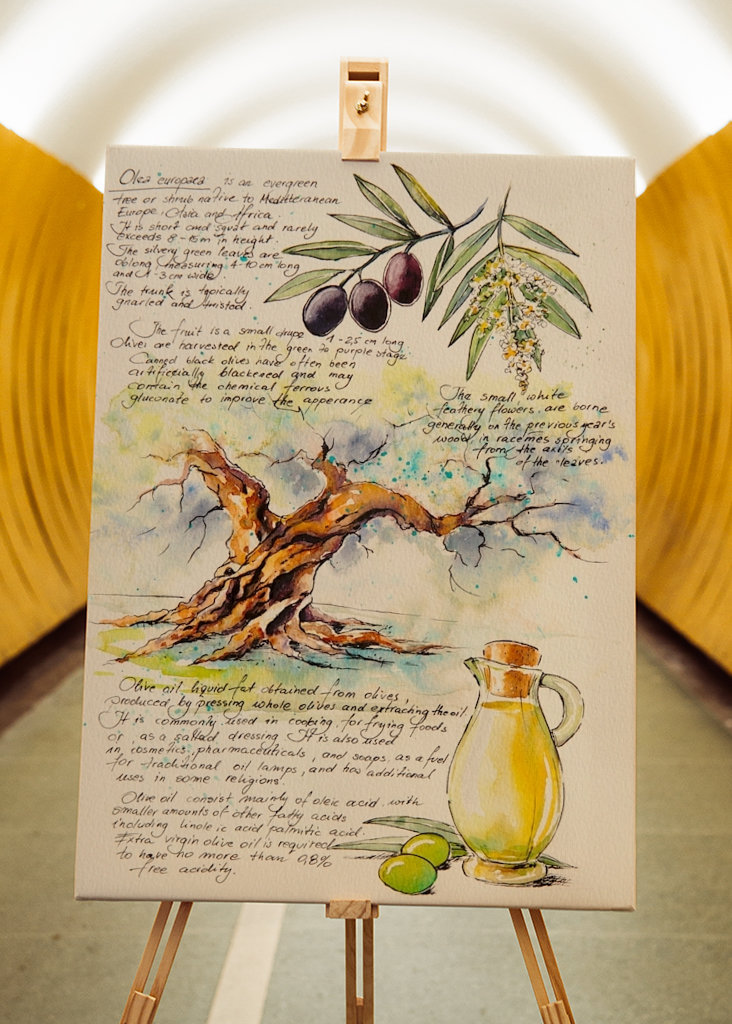 Olea europaea is an evergreen
tree or shrub native to Mediterranean
Europe, Asia and Africa.
It is short and squat and rarely
exceeds 8-15m in height.
The silvery green leaves are
oblong measuring 4-10 cm long
and 1-3 cm wide.
The trunk is typically
gnarled and twisted.
The fruit is a small drupe 1-2,5 cm long
Olives are harvested in the green to purple stage.
Canned black olives have often been
artificially blackened and may
contain the chemical ferrous
gluconate to improve the apperance
The small white
feathery flowers, are borne
generally on the previous year's
wood, in racemes springing
from the axils
of the leaves.
Olive oil liquid fat obtained from olives,
produced by pressing whole olives and extracting the oil.
It is commonly used in cooking, for frying foods
or, as a sallad dressing It is also used
in, cosmetics, pharmaceuticals, and soaps, as a fuel
for traditional oil lamps, and has additional
uses in some religions.
Olive oil consist mainly of oleic acid, with
smaller amounts of other fatty acids
including linoleic acid palmitic acid.
Extra virgin olive oil is required
to have no more than 0,8%
free acidity.